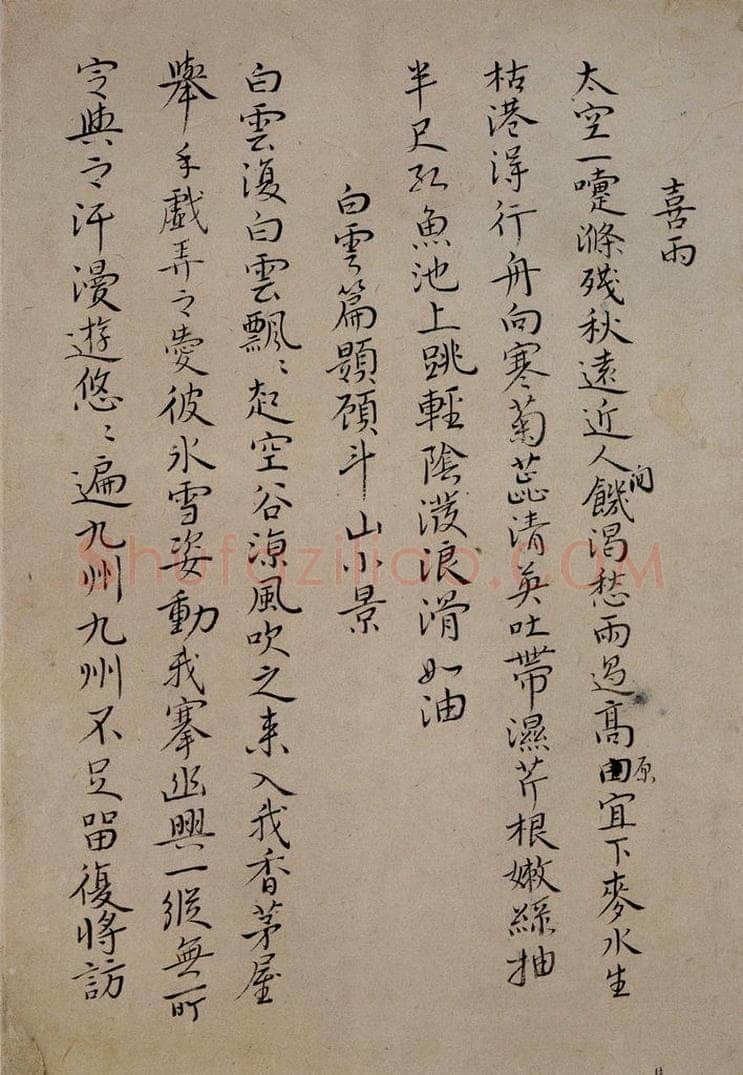 喜雨
太空一嚏滌殘秋遠近人間饑渴愁雨過高原宜下麥水生
枯港得行舟向寒菊蕋清英吐帶濕芹根嫩綠抽
半尺紅魚池上跳輕陰潑浪滑如油
白雲篇題顧斗山小景
白雲復白雲飄〻起空谷涼風吹之來入我香茅屋
舉手戲弄之愛彼氷雪姿動我搴幽興一縱無所
定與之汗漫遊悠〻遍九州九州不足留復將訪
shufaziliao.COM